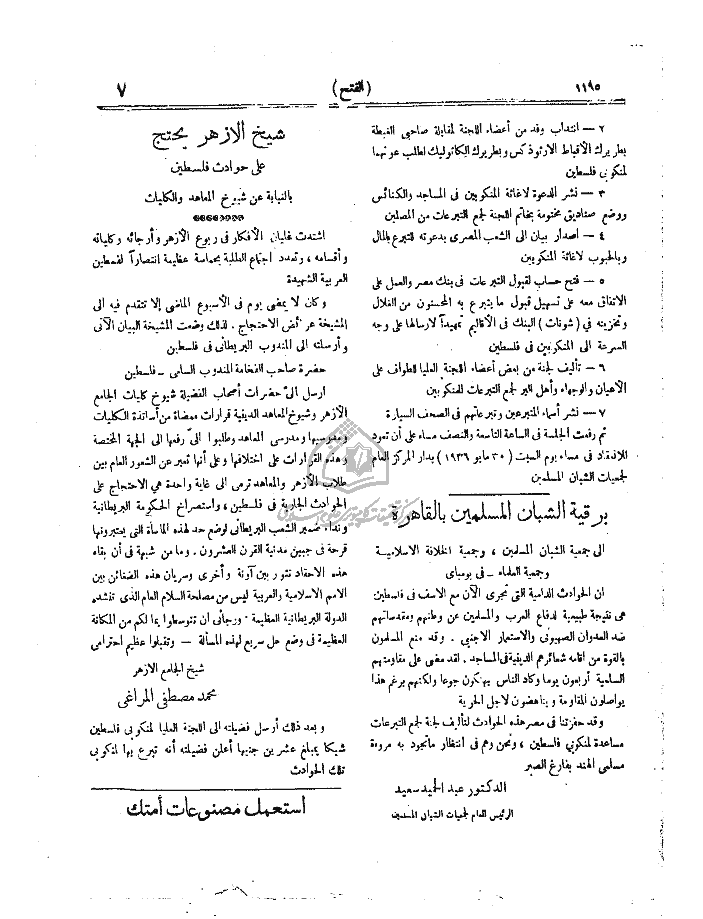 ١١٩٥
(الفتح)
٧
٢ — انتداب وفد من أعضاء اللجنة لمقابلة صاحبي الغبطة
بطريرك الأقباط الارثوذكس وبطريرك الكاثوليك لطلب عونهما
لمنكوبي فلسطين
٣ — نشر الدعوة لاغاثة المنكوبين في المساجد والكنائس
ووضع صناديق مختومة بخاتم اللجنة لجمع التبرعات من المصلين
٤ — اصدار بيان الى الشعب المصرى بدعوته للتبرع بالمال
وبالحبوب لاغاثة المنكوبين
٥ — فتح حساب لقبول التبرعات في بنك مصر والعمل على
الاتفاق معه على تسهيل قبول ما يتبرع به المحسنون من الغلال
وتخزينه في (شونات) البنك في الأقاليم تمهيداً لارسالها على وجه
السرعة الى المنكوبين في فلسطين
٦ — تأليف لجنة من بعض أعضاء اللجنة العليا للطواف على
الأعيان والوجهاء وأهل البر لجمع التبرعات للمنكوبين
٧ — نشر أسماء المتبرعين وتبرعاتهم في الصحف السيارة
ثم رفعت الجلسة في الساعة التاسعة والنصف مساء على أن تعود
للانعقاد في مساء يوم السبت (٣٠ مايو ١٩٣٦) بدار المركز العام
لجمعيات الشبان المسلمين
برقية الشبان المسلمين بالقاهرة
الى جمعية الشبان المسلمين ، وجمعية الخلافة الاسلامية
وجمعية العلماء — في بومباى
ان الحوادث الدامية التي تجرى الآن مع الاسف في فلسطين
هي نتيجة طبيعية لدفاع العرب والمسلمين عن وطنهم ومقدساتهم
ضد العدوان الصهيوني والاستعمار الاجنبي . وقد منع المسلمون
بالقوة من اقامة شعائرهم الدينية في المساجد . لقد مضى على مقاومتهم
السلمية أربعون يوما وكاد الناس يهلكون جوعا ولكنهم برغم هذا
يواصلون المقاومة ويناهضون لاجل الحرية
وقد حفزتنا في مصر هذه الحوادث لتأليف لجنة لجمع التبرعات
مساعدة لمنكوبي فلسطين ، ونحن وهم في انتظار ماتجود به مروءة
مسلمي الهند بفارغ الصبر
الدكتور عبد الحميد سعيد
الرئيس العام لجمعيات الشبان المسلمين
شيخ الازهر يحتج
على حوادث فلسطين
بالنيابة عن شيوخ المعاهد والكليات
اشتدت غليان الأفكار في ربوع الأزهر وأرجائه وكلياته
وأقسامه ، وتعدد اجتماع الطلبة بحماسة عظيمة انتصاراً لفلسطين
العربية الشهيدة
وكان لا يمضي يوم في الأسبوع الماضي إلا تتقدم فيه الى
المشيخة عرائض الاحتجاج . لذلك وضعت المشيخة البيان الآتي
وأرسلته الى المندوب البريطاني في فلسطين
حضرة صاحب الفخامة المندوب السامي — فلسطين
ارسل الىّ حضرات أصحاب الفضيلة شيوخ كليات الجامع
الأزهر وشيوخ المعاهد الدينية قرارات ممضاة من أساتذة الكليات
ومدرسيها ومدرسي المعاهد وطلبوا الىّ رفعها الى الجهة المختصة
وهذه القرارات على اختلافها وعلى أنها تعبر عن الشعور العام بين
طلاب الأزهر والمعاهد ترمى الى غاية واحدة هي الاحتجاج على
الحوادث الجارية في فلسطين ، واستصراخ الحكومة البريطانية
ونداء ضمير الشعب البريطاني لوضع حد لهذه المأساة التي يعتبرونها
قرحة في جبين مدنية القرن العشرين . وما من شبهة في أن بقاء
هذه الاحقاد تثور بين آونة وأخرى وسريان هذه الضغائن بين
الامم الاسلامية والعربية ليس من مصلحة السلام العام الذى تنشده
الدولة البريطانية العظيمة . ورجائي ان تتوسطوا بما لكم من المكانة
العظيمة في وضع حل سريع لهذه المسألة — وتقبلوا عظيم احترامي
شيخ الجامع الازهر
محمد مصطفى المراغي
وبعد ذلك أرسل فضيلته الى اللجنة العليا لمنكوبي فلسطين
شيكا بمبلغ عشرين جنيها أعلن فضيلته أنه تبرع بها لمنكوبي
تلك الحوادث
استعمل مصنوعات أمتك